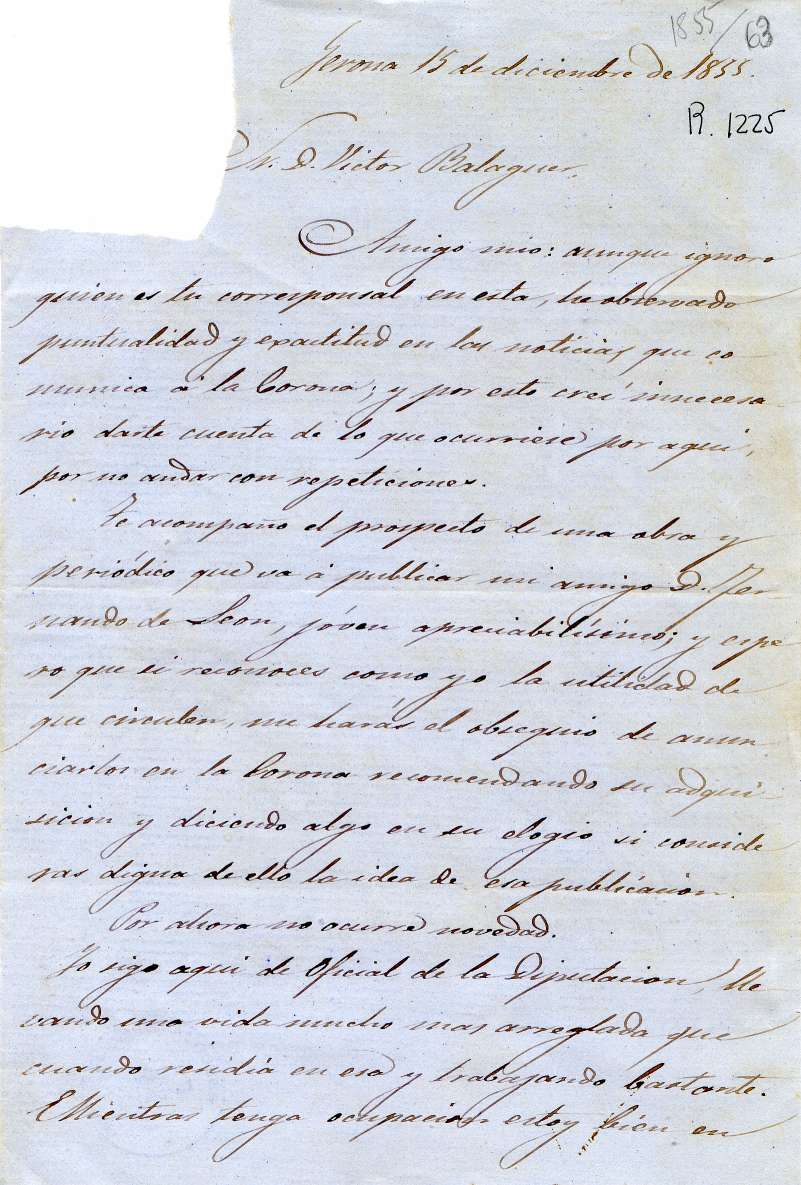 1855/63
Jerona 15 de diciembre de 1855.
R. 1225
Sr. D. Victor Balaguer.
Amigo mio: aunque ignoro
quien es tu corresponsal en esta, he observado
puntualidad y exactitud en las noticias que co-
munica á la Corona; y por esto creí innecesa-
rio darte cuenta de lo que ocurriese por aqui,
por no andar con repeticiones.
Te acompaño el prospecto de una obra y
periódico que va á publicar mi amigo D. Fer
nando de Leon, jóven apreciabilísimo; y espe
ro que si reconoces como yo la utilidad de
que circulen, me harás el obsequio de anun
ciarlos en la Corona recomendando su adqui-
sicion y diciendo algo en su elogio si conside
ras digna de ello la idea de esa publicacion.
Por ahora no ocurre novedad.
Yo sigo aqui de Oficial de la Diputacion, lle
vando una vida mucho mas arreglada que
cuando residia en esa y trabajando bastante.
Mientras tenga ocupacion estoy bien en